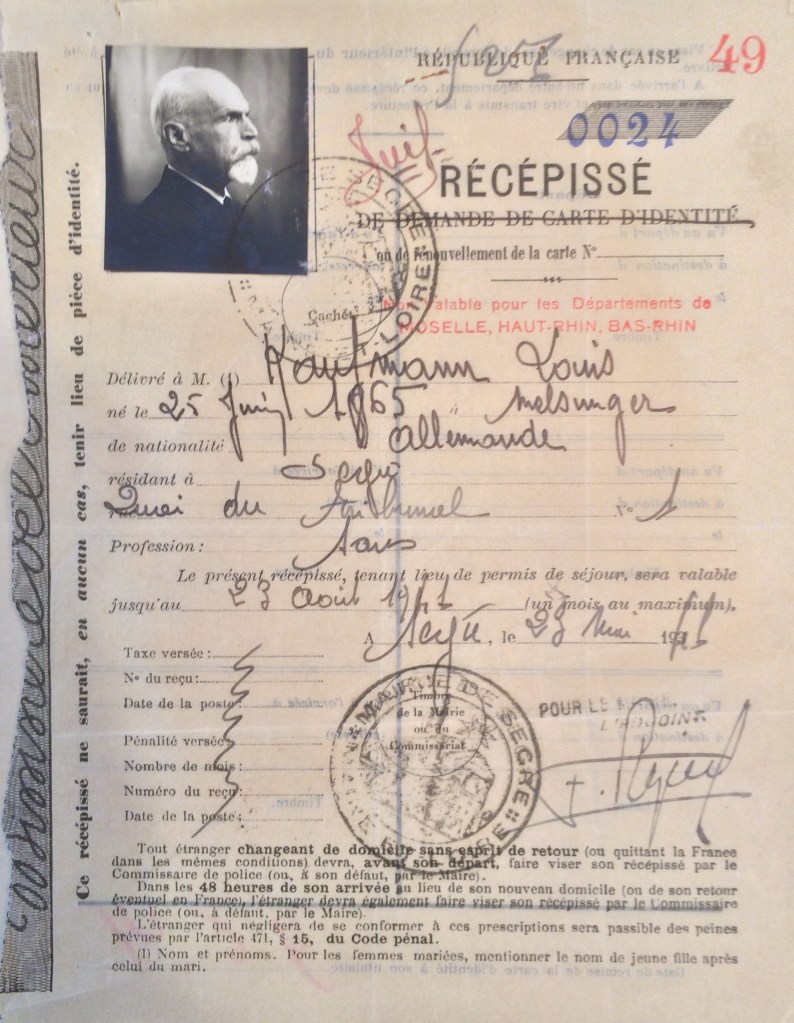 RÉPUBLIQUE FRANÇAISE
49
0024
Juif
RÉCÉPISSÉ
DE DEMANDE DE CARTE D'IDENTITÉ
ou de renouvellement de la carte N°
Cachet
Non valable pour les Départements de
MOSELLE, HAUT-RHIN, BAS-RHIN
Délivré à M. (1) Kaufmann Louis
né le 25 Juin 1865 à Melsunger
de nationalité Allemande
résidant à Segré
Quai du Tribunal N° 1
Profession : Sans
Le présent récépissé, tenant lieu de permis de séjour, sera valable
jusqu'au 23 Août 1941 (un mois au maximum).
A Segré, le 23 Mai 1941
Taxe versée :
N° du reçu :
Date de la poste :
Pénalité versée :
Nombre de mois :
Numéro du reçu :
Date de la poste :
Timbre
de la Mairie
ou du
Commissariat
MAIRIE DE SEGRÉ
POUR LE MAIRE
L'ADJOINT
Tout étranger changeant de domicile sans esprit de retour (ou quittant la France
dans les mêmes conditions) devra, avant son départ, faire viser son récépissé par le
Commissaire de police (ou, à son défaut, par le Maire).
Dans les 48 heures de son arrivée au lieu de son nouveau domicile (ou de son retour
éventuel en France), l'étranger devra également faire viser son récépissé par le Commissaire
de police (ou, à défaut, par le Maire).
L'étranger qui négligera de se conformer à ces prescriptions sera passible des peines
prévues par l'article 471, § 15, du Code pénal.
(1) Nom et prénoms. Pour les femmes mariées, mentionner le nom de jeune fille après
celui du mari.
Ce récépissé ne saurait, en aucun cas, tenir lieu de pièce d'identité.